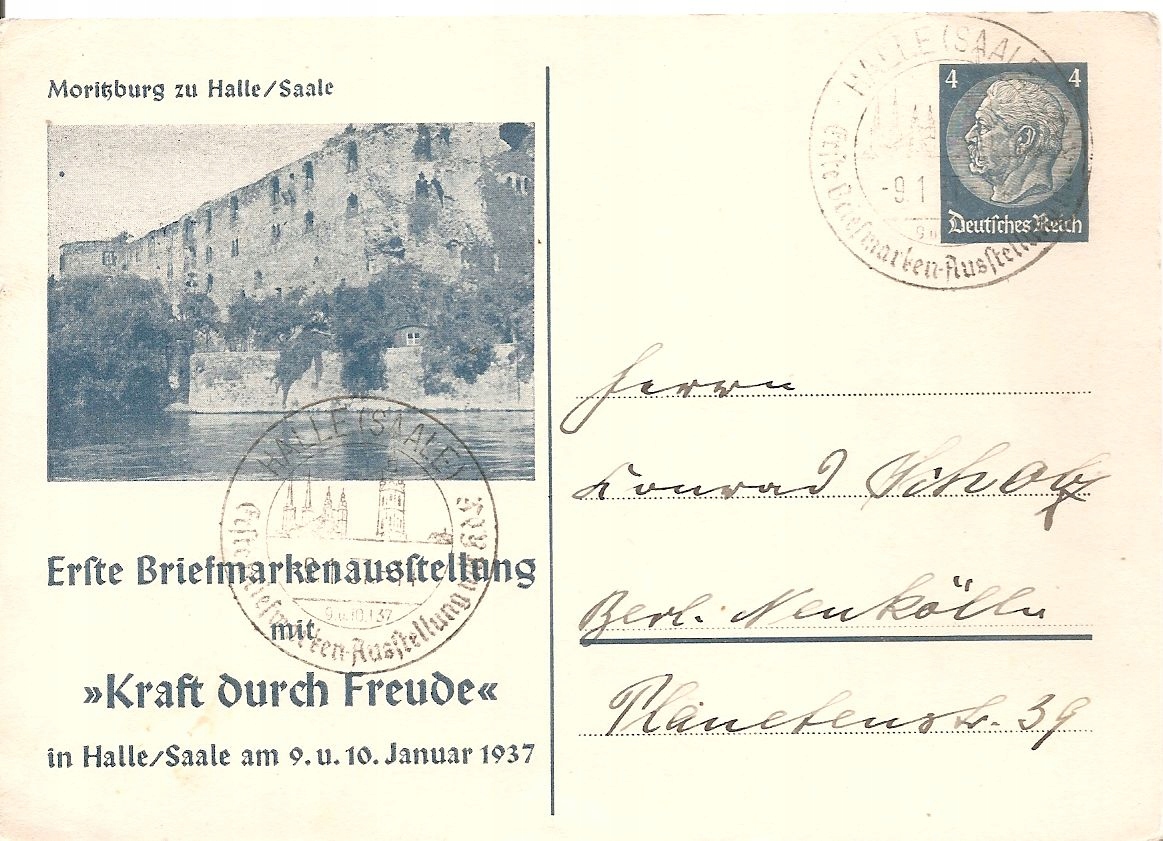 Moritzburg zu Halle/Saale
Erſte Briefmarkenausſtellung
mit
»Kraft durch Freude«
in Halle/Saale am 9. u. 10. Januar 1937
HALLE (SAALE)
Erſte Briefmarken-Ausſtellung
9.u.10.1.37
4 4
Deutſches Reich
HALLE (SAALE
-9.1
Erſte Briefmarken-Ausſtellung
Herrn
Konrad
Berl. Neukölln
Planetenstr. 39